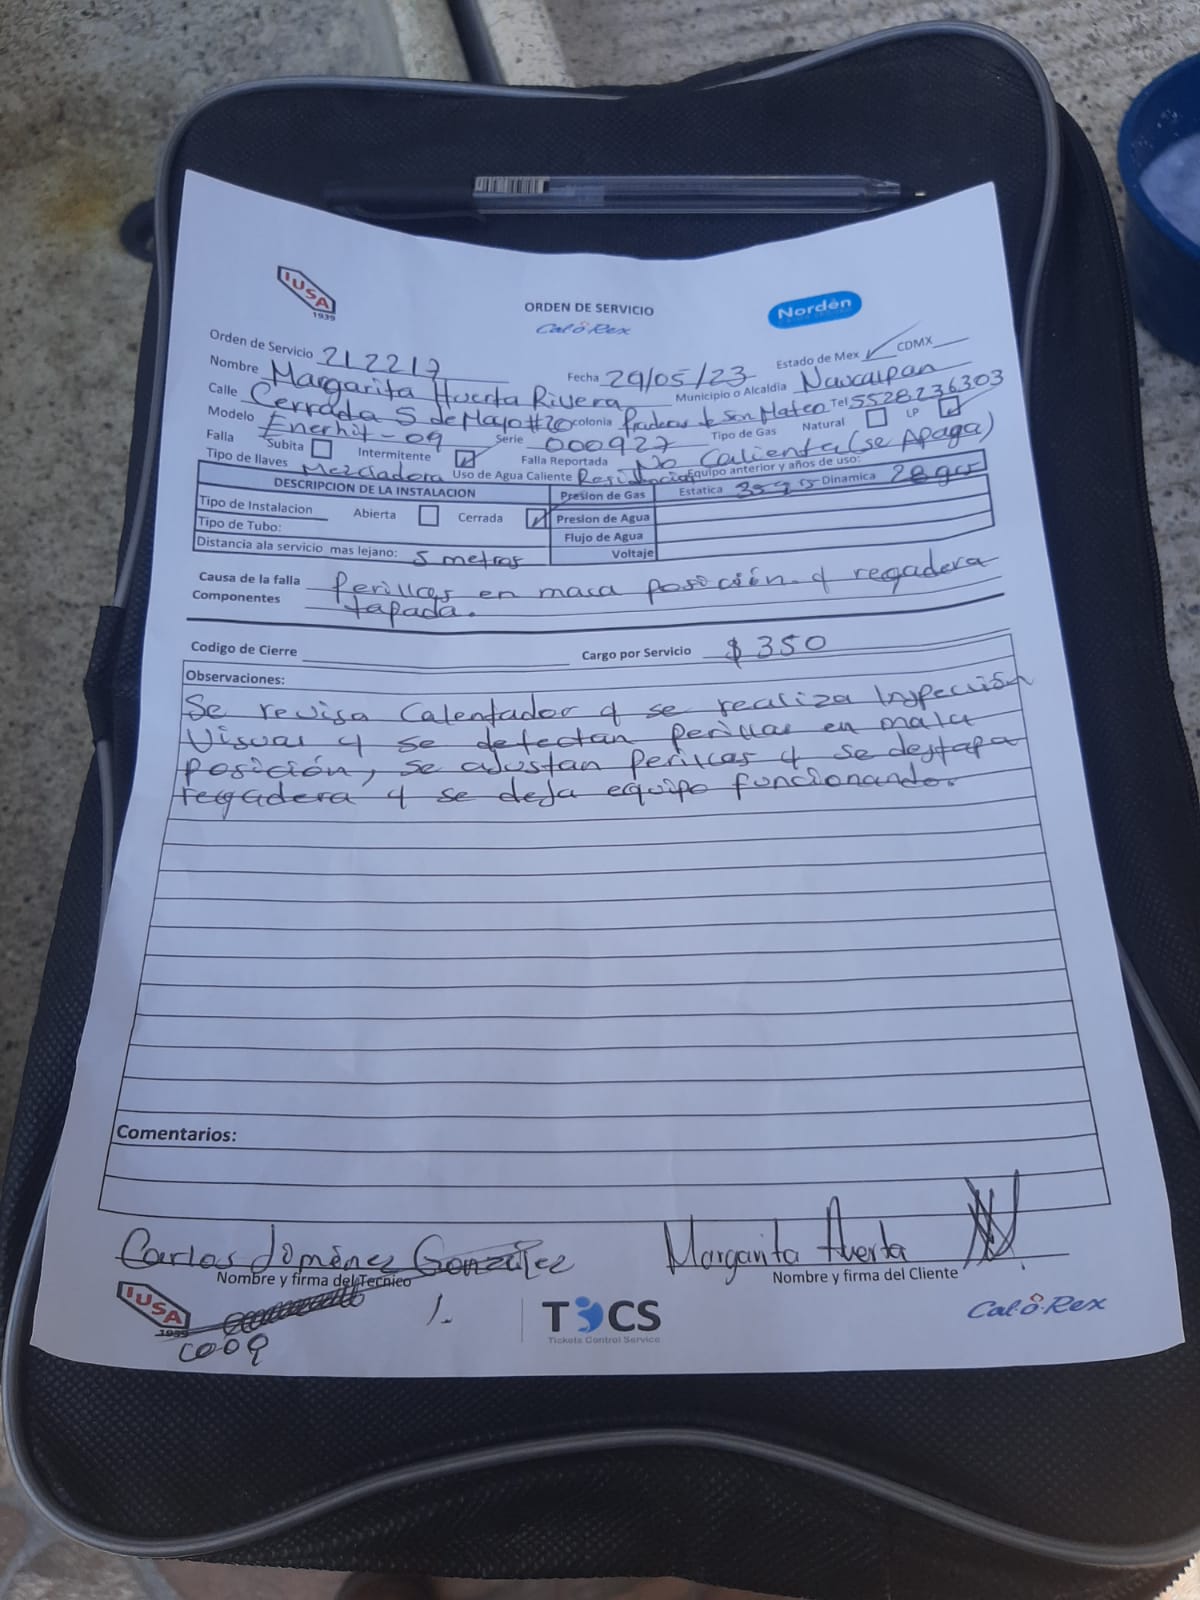 IUSA
1939
ORDEN DE SERVICIO
Cal-o-Rex
Nordën
Orden de Servicio 212217
Fecha 29/05/23 Estado de Mex ✓ CDMX
Nombre Margarita Huerta Rivera Municipio o Alcaldia Naucalpan
Calle Cerrada 5 de Mayo #20 colonia Praderas de San Mateo Tel 5528236303
Modelo Enerhit-09 Serie 000927 Tipo de Gas Natural LP ✓
Falla Subita Intermitente ✓ Falla Reportada No Calienta (se Apaga)
Tipo de llaves Mezcladora Uso de Agua Caliente Residencial Equipo anterior y años de uso:
DESCRIPCION DE LA INSTALACION Presion de Gas Estatica 35grs Dinamica 28grs
Tipo de Instalacion Abierta Cerrada ✓ Presion de Agua
Tipo de Tubo: Flujo de Agua
Distancia ala servicio mas lejano: 5 metros Voltaje
Causa de la falla Perillas en mala posición y regadera
Componentes tapada.
Codigo de Cierre Cargo por Servicio $350
Observaciones:
Se revisa Calentador y se realiza Inspección
Visual y se detectan perillas en mala
posición, se ajustan perillas y se destapa
regadera y se deja equipo funcionando.
Comentarios:
Carlos Jiménez González Margarita Huerta
Nombre y firma del Tecnico Nombre y firma del Cliente
IUSA
1939
C009
TCS
Tickets Control Service
Cal-o-Rex